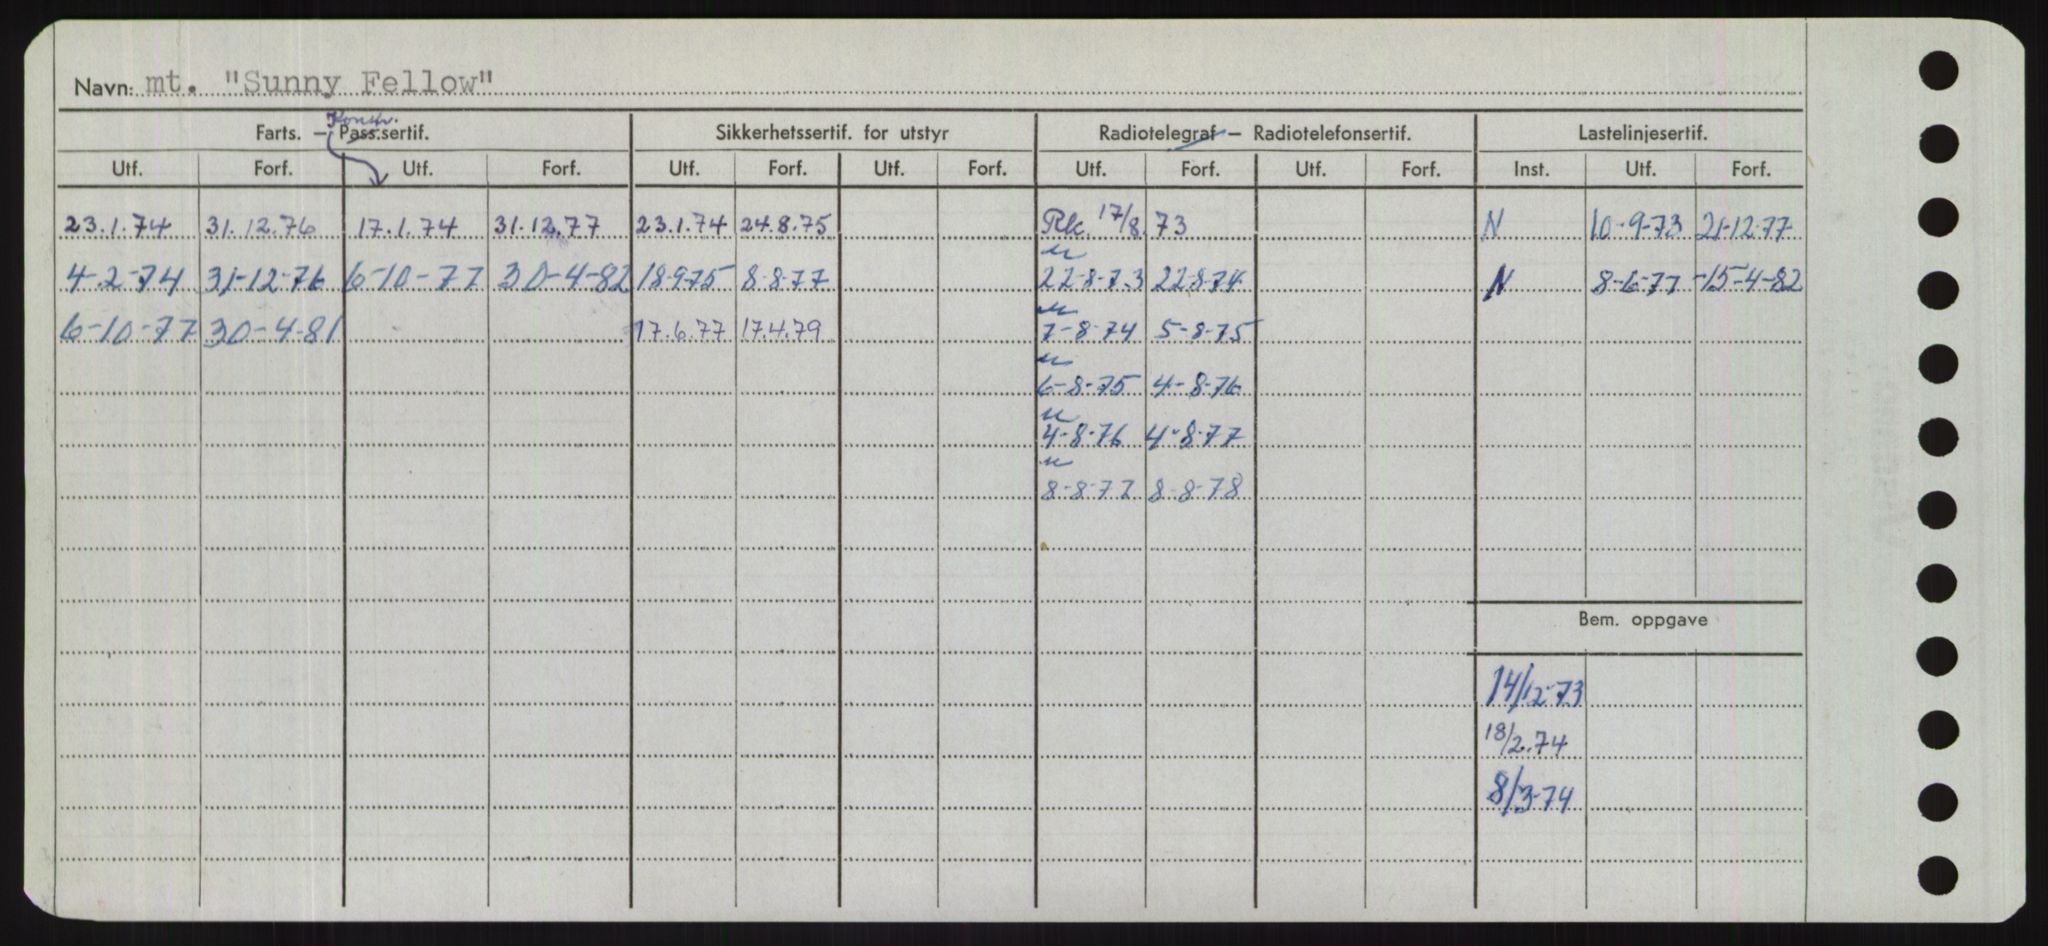 Navn: mt. "Sunny Fellow"
Konstr.
Farts. – Pass.sertif. Sikkerhetssertif. for utstyr Radiotelegraf – Radiotelefonsertif. Lastelinjesertif.
Utf. Forf. Utf. Forf. Utf. Forf. Utf. Forf. Utf. Forf. Utf. Forf. Inst. Utf. Forf.
23.1.74 31.12.76 17.1.74 31.12.77 23.1.74 24.8.75 Rk. 17/8.73 N 10-9-73 21-12-77
4-2-74 31-12-76 6-10-77 30-4-82 18-9-75 8-8-77 22-8-73 22-8-74 N 8-6-77 15-4-82
6-10-77 30-4-81 17.6.77 17.4.79 7-8-74 5-8-75
6-8-75 4-8-76
4-8-76 4-8-77
8-8-77 8-8-78
Bem. oppgave
14/12-73
18/2.74
8/3-74